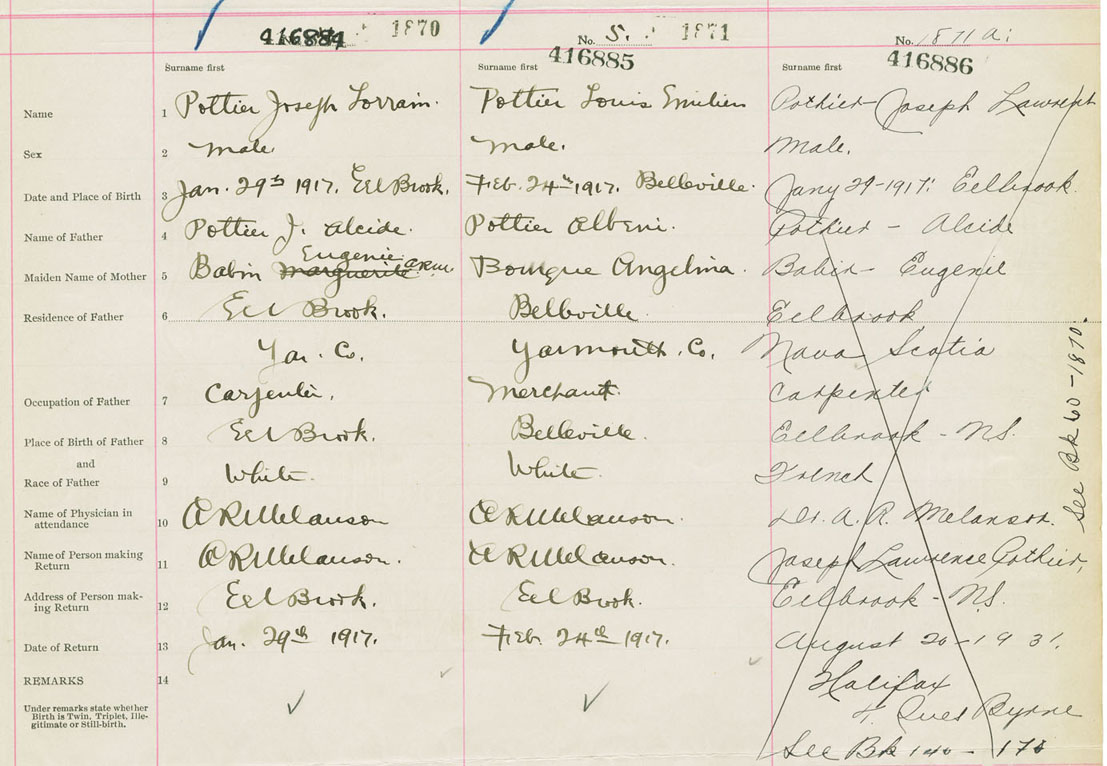 416884 1870
No. S. 1871
416885
No. 1871 A.
416886
Surname first
Surname first
Surname first
Name 1 Pottier Joseph Lorrain. Pottier Louis Emilien Pothier - Joseph Lawrence
Sex 2 male. male. male.
Date and Place of Birth 3 Jan. 29th 1917. Eel Brook. Feb. 24th 1917. Belleville. Jany 29-1917: Eelbrook.
Name of Father 4 Pottier J. Alcide. Pottier Albeni. Pothier - Alcide
Eugenie ARM
Maiden Name of Mother 5 Babin Marguerite Bourque Angelina. Babin - Eugenie
Residence of Father 6 Eel Brook. Belleville. Eelbrook
Yar. Co. Yarmouth. Co. Nova Scotia
Occupation of Father 7 Carpenter. Merchant. Carpenter
Place of Birth of Father 8 Eel Brook. Belleville. Eelbrook - N.S.
and
Race of Father 9 White. White. French
Name of Physician in
attendance 10 A R Melanson A R Melanson. Dr. A. R. Melanson.
Name of Person making
Return 11 A R Melanson. A R Melanson. Joseph Lawrence Pothier,
Address of Person mak-
ing Return 12 Eel Brook. Eel Brook. Eelbrook - N.S.
Date of Return 13 Jan. 29th 1917. Feb. 24th 1917. August 20-1931.
REMARKS 14 Halifax
Under remarks state whether
Birth is Twin, Triplet, Ille-
gitimate or Still-birth.
Byrne
See Bk 140 -
See Bk 60-1870.